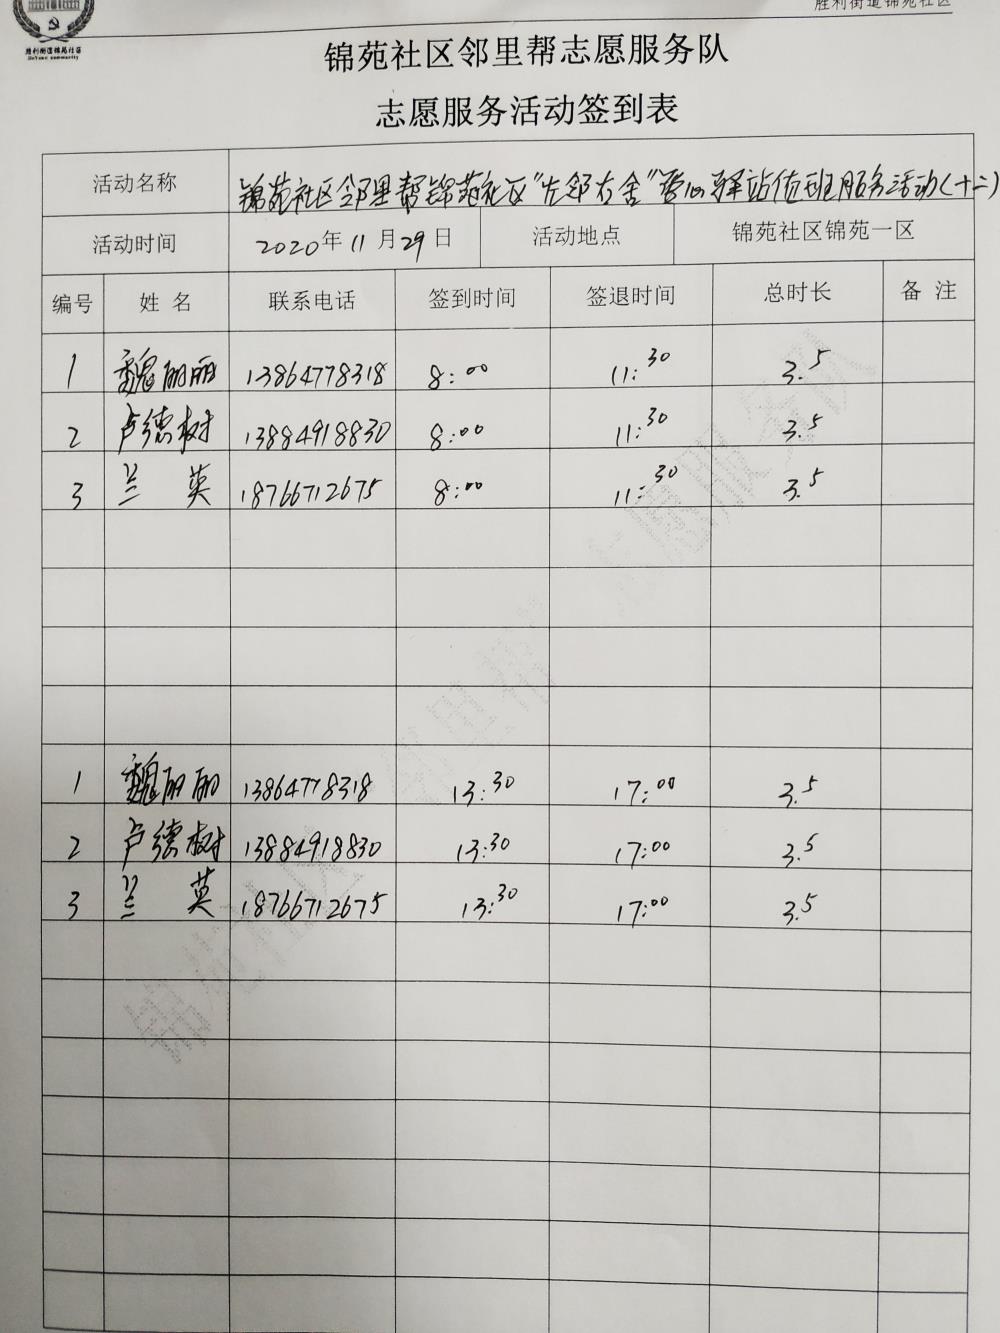 胜利街道锦苑社区
胜利街道锦苑社区
JinYuan community
锦苑社区邻里帮志愿服务队
志愿服务活动签到表
活动名称 锦苑社区邻里帮锦苑社区“左邻右舍”爱心驿站值班服务活动(十二)
活动时间 2020年11月29日 活动地点 锦苑社区锦苑一区
编号 姓名 联系电话 签到时间 签退时间 总时长 备注
1 魏丽丽 13864778318 8:00 11:30 3.5
2 卢德树 13884918830 8:00 11:30 3.5
3 兰英 18766712675 8:00 11:30 3.5
1 魏丽丽 13864778318 13:30 17:00 3.5
2 卢德树 13884918830 13:30 17:00 3.5
3 兰英 18766712675 13:30 17:00 3.5
锦苑社区“邻里帮”志愿服务队